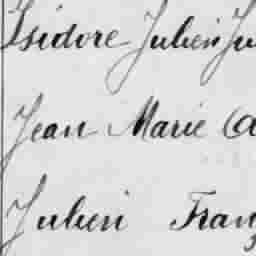 Isidore Julien Ju
Jean Marie A
Julien Franç